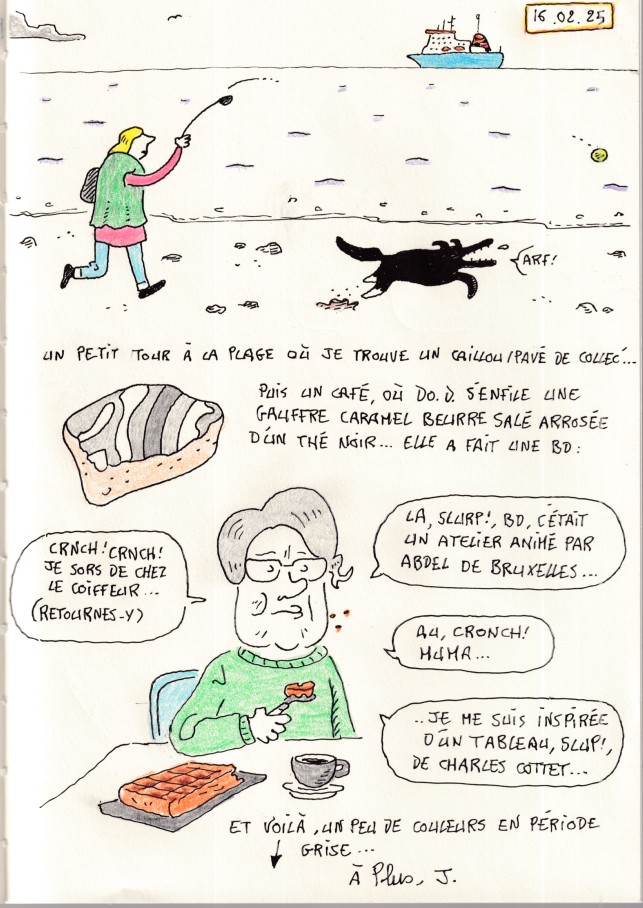 16.02.25
ARF!
UN PETIT TOUR À LA PLAGE OÙ JE TROUVE UN CAILLOU/PAVÉ DE COLLEC'...
PUIS UN CAFÉ, OÙ DO.D. S'ENFILE UNE
GAUFFRE CARAMEL BEURRE SALÉ ARROSÉE
D'UN THÉ NOIR... ELLE A FAIT UNE BD:
CRNCH! CRNCH!
JE SORS DE CHEZ
LE COIFFEUR...
(RETOURNES-Y)
LA, SLURP!, BD, C'ÉTAIT
UN ATELIER ANIMÉ PAR
ABDEL DE BRUXELLES...
AU, CRONCH!
MUMA...
..JE ME SUIS INSPIRÉE
D'UN TABLEAU, SLUP!,
DE CHARLES COTTET...
ET VOILÀ, UN PEU DE COULEURS EN PÉRIODE
GRISE...
À Plus, J.